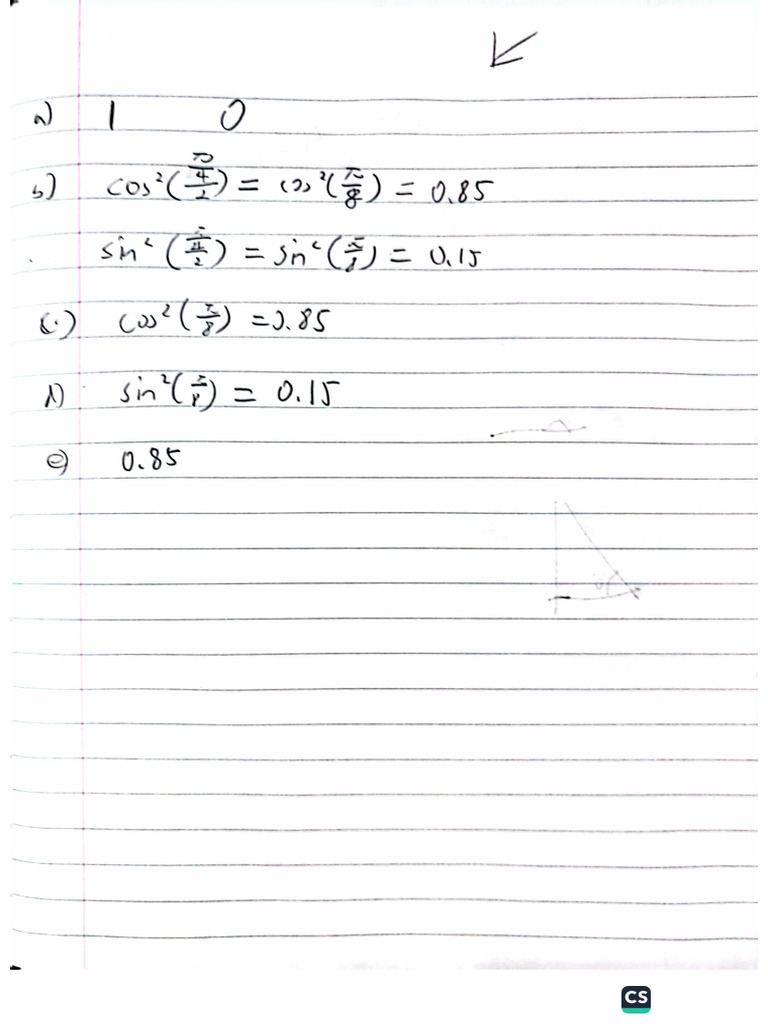 a) 1 0
b) cos²((π/4)/2) = cos²(π/8) = 0.85
sin²((π/4)/2) = sin²(π/8) = 0.15
c) cos²(π/8) = 0.85
d) sin²(π/8) = 0.15
e) 0.85
CS